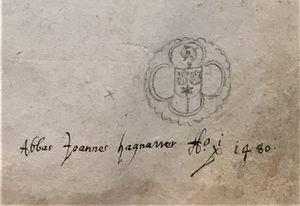 Abbas Joannes hagnauer 1480